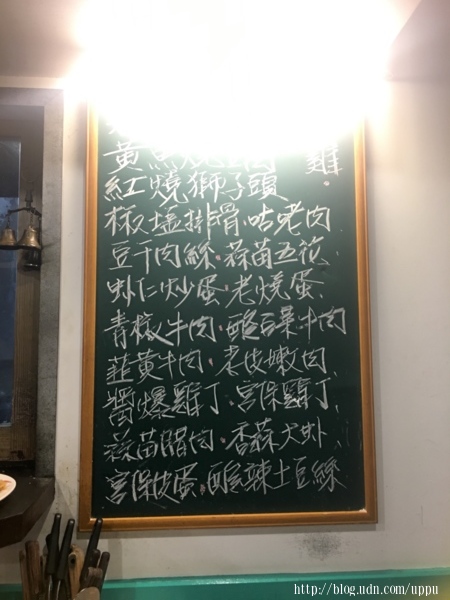 黃魚燒豆腐 雞.
紅燒獅子頭
椒塩排骨.咕咾肉
豆干肉絲.蒜苗五花
虾仁炒蛋.老燒蛋
青椒牛肉.酸白菜牛肉
韮黃牛肉.老皮嫩肉
醬爆雞丁.宮保雞丁
蒜苗腊肉.香蒜大虾
宮保皮蛋.酸辣土豆絲
http://blog.udn.com/uppu